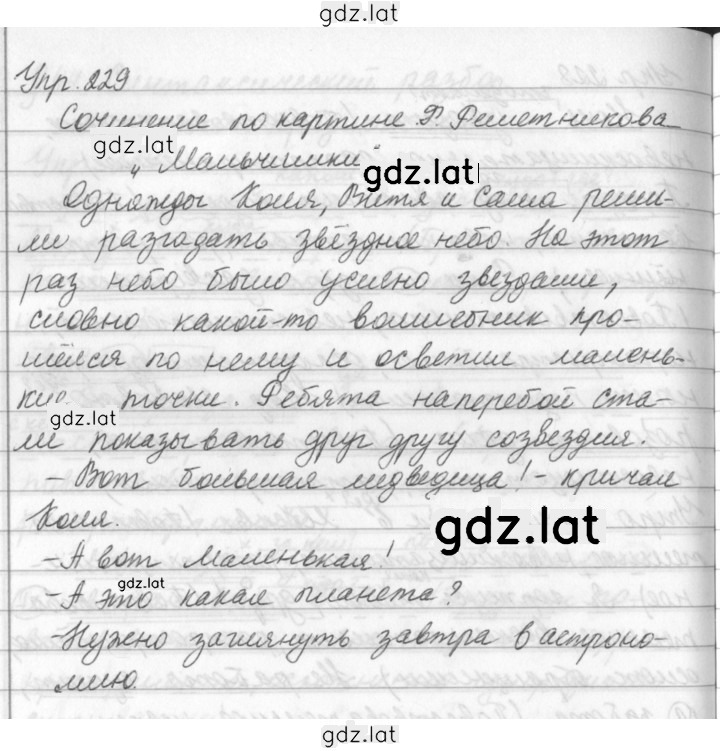 gdz.lat
Упр. 229
Сочинение по картине Ф. Решетникова
gdz.lat
„Мальчишки"
gdz.lat
Однажды Коля, Витя и Саша реши-
ли разгадать звёздное небо. На этот
раз небо было усеяно звездами,
словно какой-то волшебник про-
шёлся по нему и осветил малень-
кие точки. Ребята наперебой ста-
gdz.lat
ли показывать друг другу созвездия.
- Вот большая медведица! - кричал
Коля.
gdz.lat
- А вот Маленькая!
gdz.lat
- А это какая планета?
- Нужно заглянуть завтра в астроно-
мию.
gdz.lat